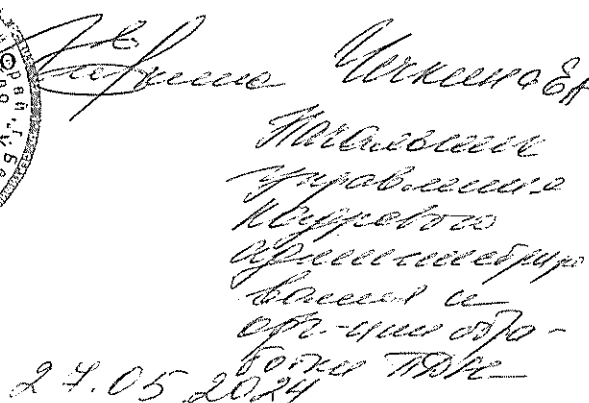 Ичкина ЕА
Начальник
управления
кадрового
администриро
вания и
орг-ции обра-
ботки ПДн
27.05.2024